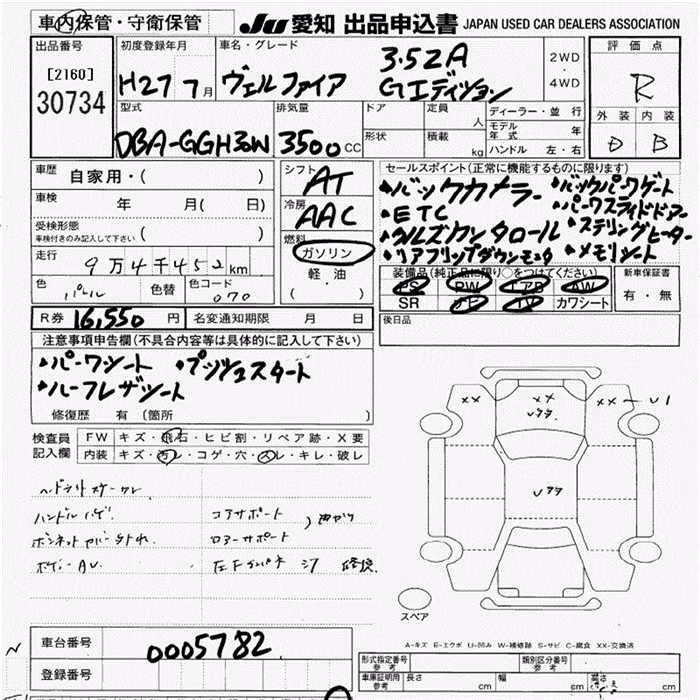 車内保管・守衛保管
JU 愛知 出品申込書 JAPAN USED CAR DEALERS ASSOCIATION
出品番号
[2160]
30734
初度登録年月
H27 7月
車名・グレード
ヴェルファイア
3.5ZA
Gエディション
2WD
・
4WD
評価点
R
外装 内装
D B
型式
DBA-GGH30W
排気量
3500cc
ドア
形状
定員
人
積載
kg
ディーラー・並行
モデル年式 年
ハンドル 左・右
車歴
自家用・( )
車検
年 月( 日)
受検形態
車検付きのみ記入して下さい ( )
走行
9万4千452km
色
パール
色替
色コード
070
シフト
AT
冷房
AAC
燃料
ガソリン
軽・油
( ・ )
セールスポイント(正常に機能するものに限ります)
・バックカメラー ・バックパワーゲート
・ETC ・パワースライドドアー
・クルーズコントロール ・ステリングヒーター
・リアフリップダウンモニタ ・メモリシート
装備品(純正品に限り○をつけてください)
PS PW エアB AW
SR ナビ TV カワシート
新車保証書
有・無
R券 16,550円
名変通知期限 月 日
後日品
注意事項申告欄(不具合内容等は具体的に記入して下さい)
・パーワシート ・プッシュスタート
・ハーフレザシート
修復歴 有(箇所 )
検査員
記入欄
FW キズ・飛石・ヒビ割・リペア跡・X要
内装 キズ・汚レ・コゲ・穴・スレ・キレ・破レ
ハンドルハゲ コアサポート
ボンネットカバー外れ ロアーサポート
ボデーAU 修換
XX XX XX U1
スペア
A-キズ E-エクボ U-凹み W-補修跡 S-サビ C-腐食 XX-交換済
車台番号
0005782
登録番号
形式指定番号
参考
類別区分番号
参考
車庫証明用
参考
長さ cm 幅 cm 高さ cm